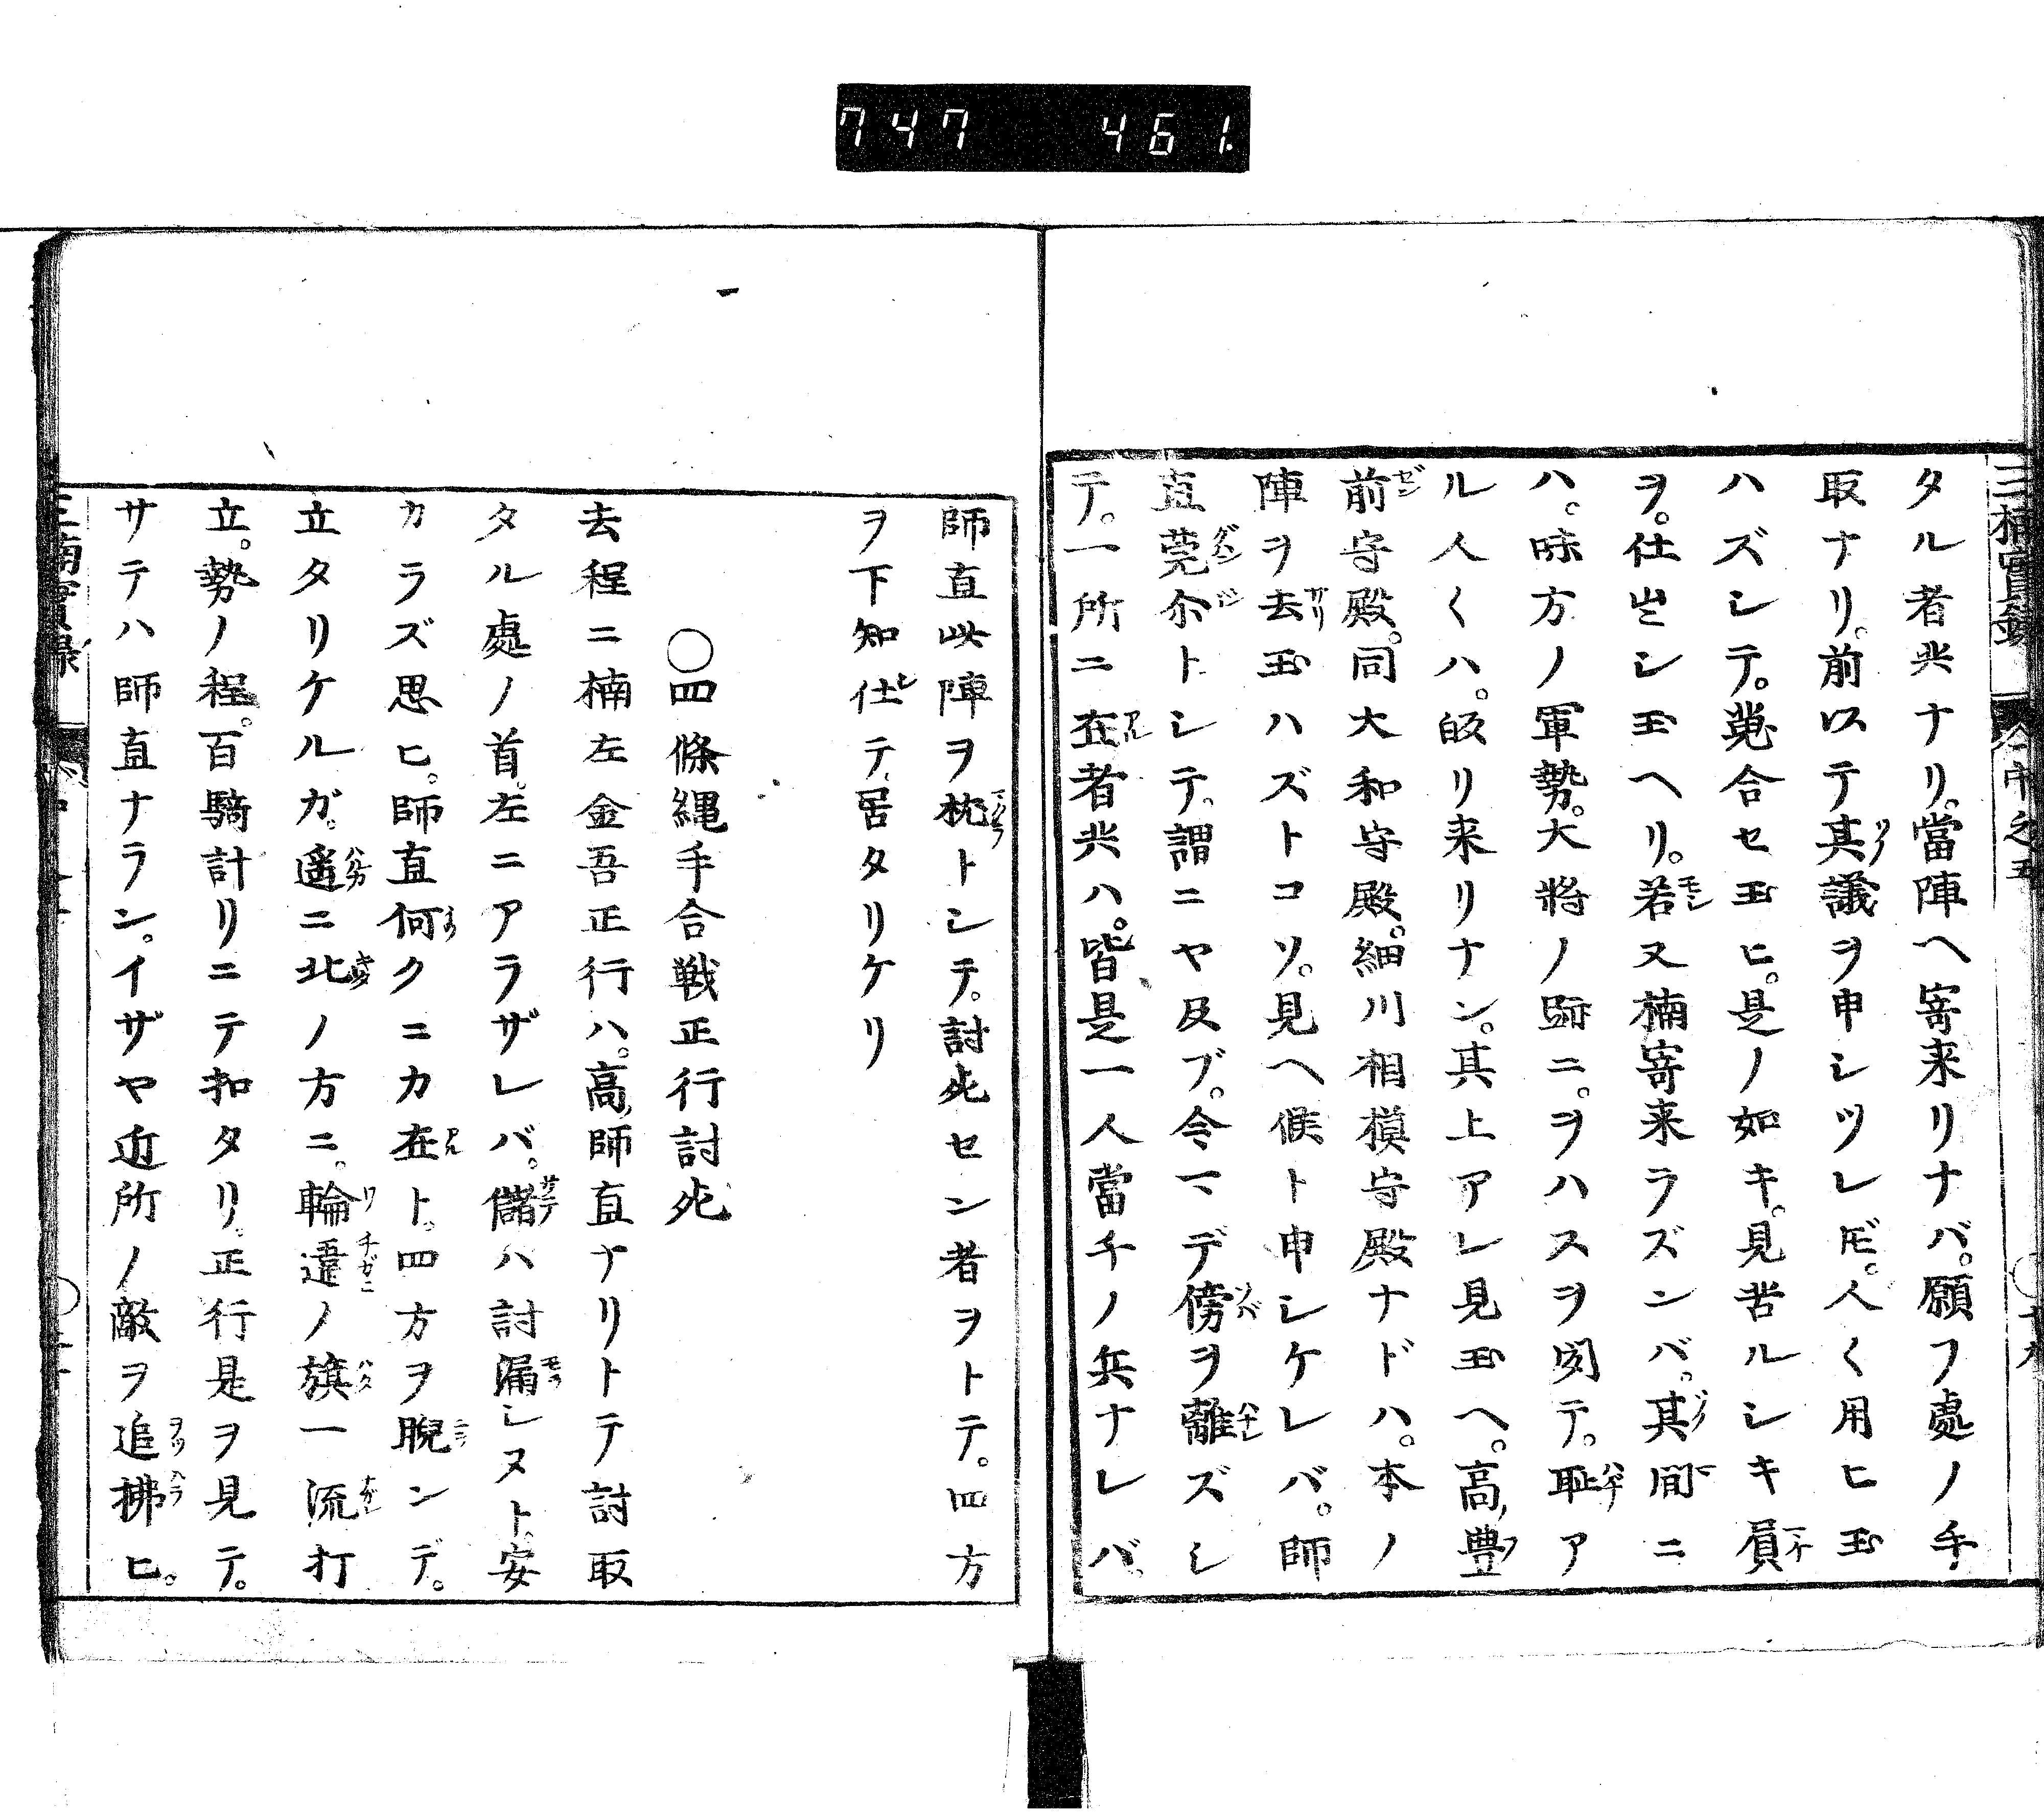 747 461.
タル者共ナリ。當陣ヘ寄来リナバ。願フ處ノ手
取ナリ。前以テ其議ヲ申シツレ𪜈。人〱用ヒ玉
ハズシテ。蒐合セ玉ヒ。是ノ如キ。見苦ルシキ員
ヲ。仕出シ玉ヘリ。若又楠寄来ラズンバ。其間ニ
ハ。味方ノ軍勢。大將ノ跡ニ。ヲハスヲ囡テ。耻ア
ル人〱ハ。皈リ来リナン。其上アレ見玉ヘ。高豊
前守殿。同大和守殿。細川相模守殿ナドハ。本ノ
陣ヲ去玉ハズトコソ。見ヘ候ト申シケレバ。師
直莞尓トシテ。謂ニヤ及ブ。今マデ傍ヲ離ズシ
テ。一所ニ在者共ハ。皆是一人當千ノ兵ナレバ。
師直此陣ヲ枕トシテ。討死セン者ヲトテ。四方
ヲ下知仕テ居タリケリ
〇四條縄手合戦正行討死
去程ニ楠左金吾正行ハ。高師直ナリトテ討取
タル處ノ首。左ニアラザレバ。儲ハ討漏シヌト。安
カラズ思ヒ。師直何クニカ在ト。四方ヲ睨ンデ。
立タリケルガ。遥ニ北ノ方ニ。輪違ノ旗一流打
立。勢ノ程。百騎計リニテ扣タリ。正行是ヲ見テ。
サテハ師直ナラン。イザヤ近所ノ敵ヲ追拂ヒ。